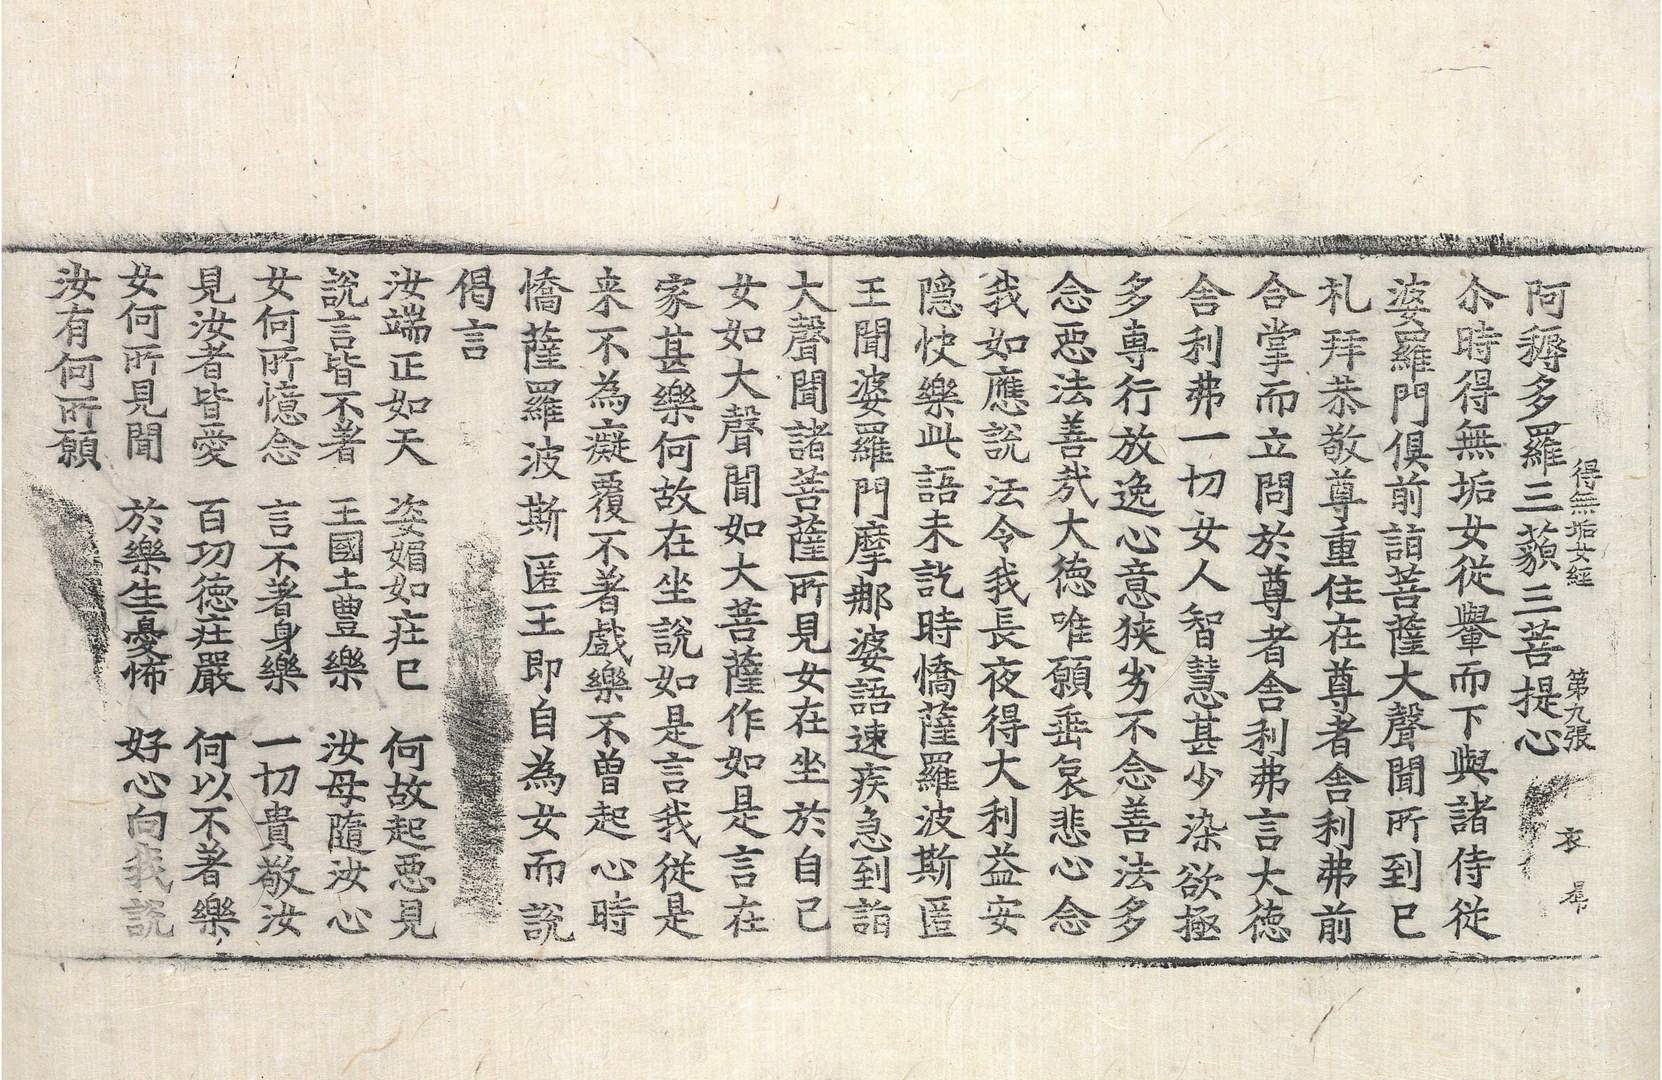 得無垢女經 第九張 衣
阿耨多羅三藐三菩提心
尒時得無垢女從轝而下與諸侍從
婆羅門俱前詣菩薩大聲聞所到已
礼拜恭敬尊重住在尊者舍利弗前
合掌而立問於尊者舍利弗言大德
舍利弗一切女人智慧甚少染欲極
多專行放逸心意狹劣不念善法多
念惡法善哉大德唯願垂哀悲心念
我如應說法令我長夜得大利益安
隱快樂此語未訖時憍薩羅波斯匿
王聞婆羅門摩那婆語速疾急到詣
大聲聞諸菩薩所見女在坐於自己
女如大聲聞如大菩薩作如是言在
家甚樂何故在坐說如是言我從是
来不為癡覆不著戲樂不曾起心時
憍薩羅波斯匿王即自為女而說
偈言
汝端正如天 姿媚如庄已 何故起惡見
說言皆不著 王國土豊樂 汝母隨汝心
女何所憶念 言不著身樂 一切貴敬汝
見汝者皆愛 百功德庄嚴 何以不著樂
女何所見聞 於樂生憂怖 好心向我說
汝有何所願